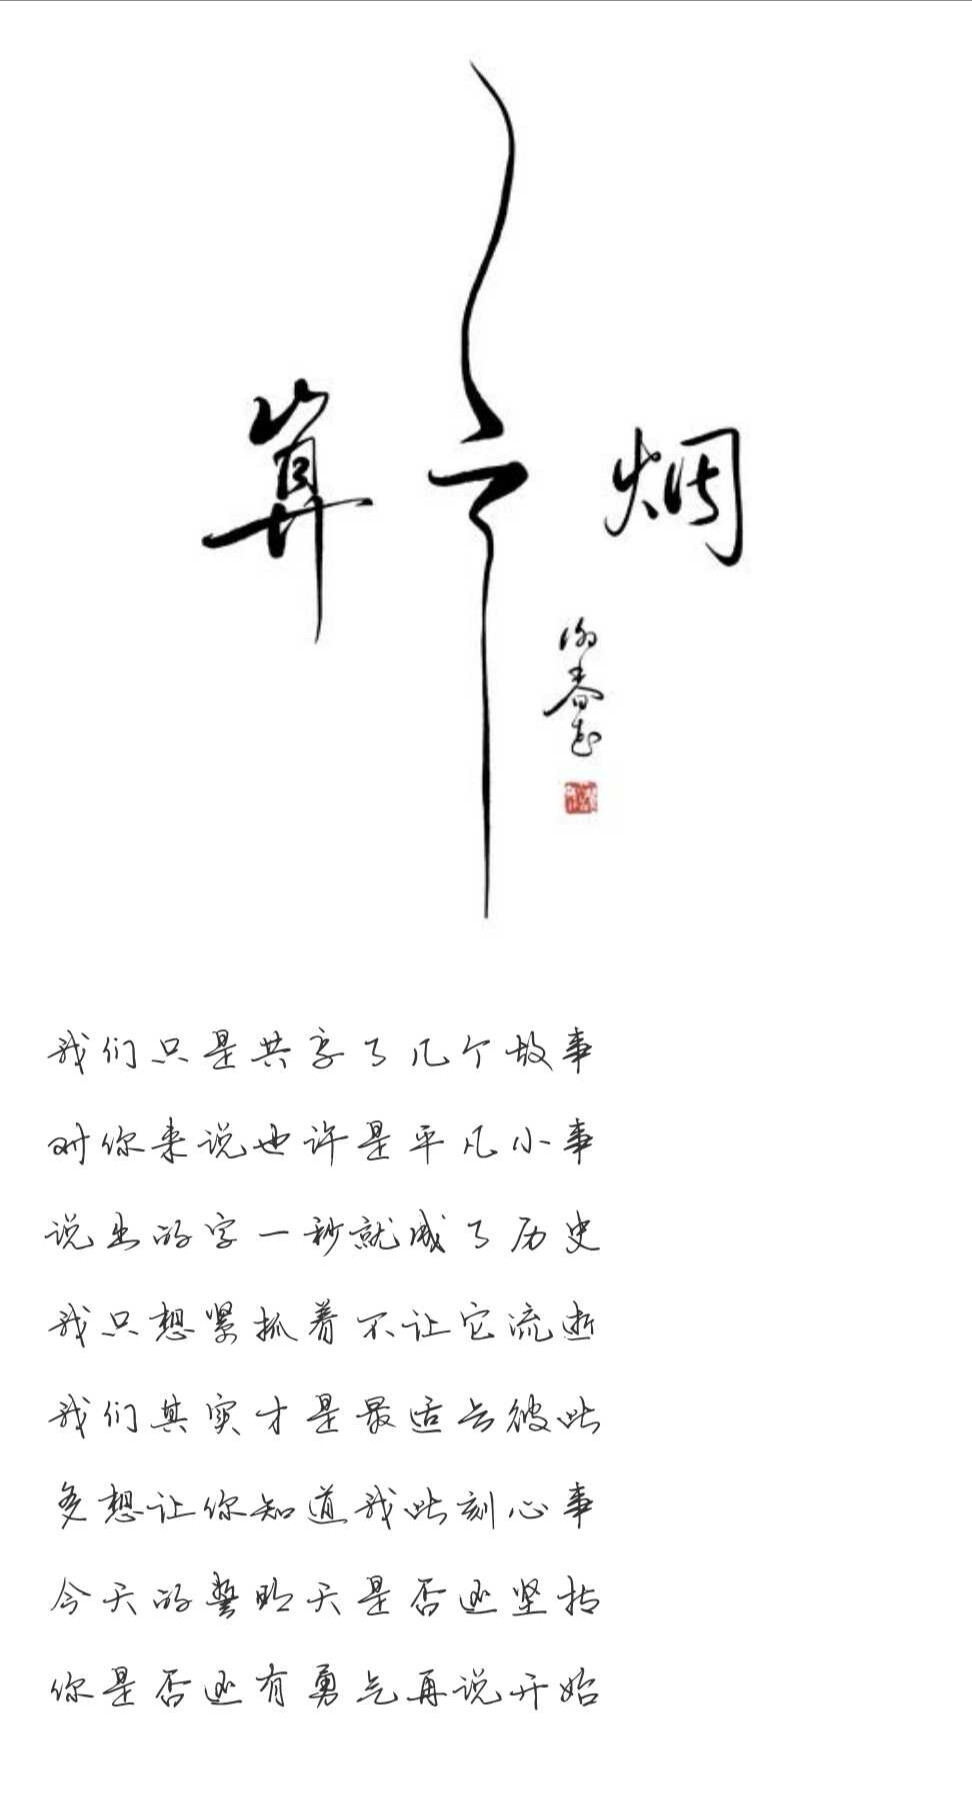 算了 烟
我们只是共享了几个故事
对你来说也许是平凡小事
说出的字一秒就成了历史
我只想紧抓着不让它流逝
我们其实才是最适合彼此
多想让你知道我此刻心事
今天的誓明天是否还坚持
你是否还有勇气再说开始